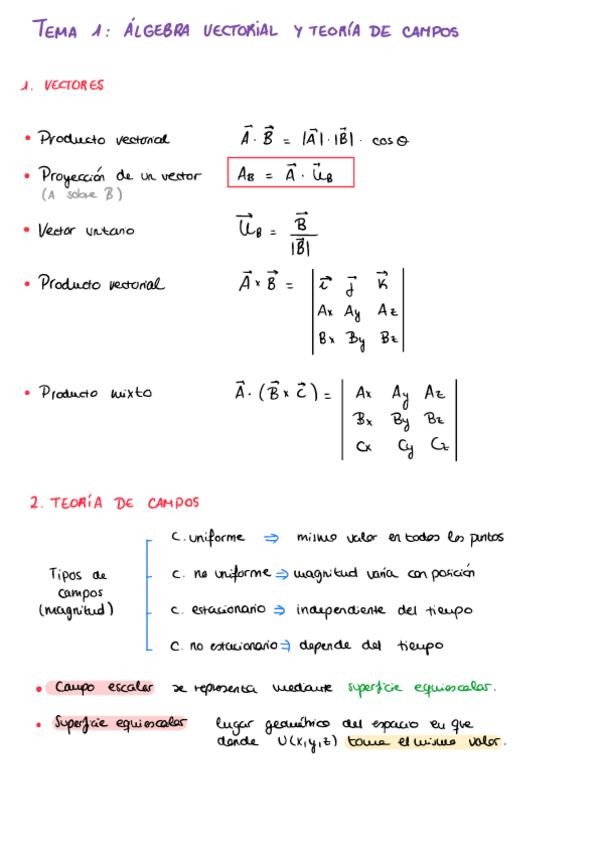 TEMA 1: ÁLGEBRA VECTORIAL Y TEORÍA DE CAMPOS
1. VECTORES
• Producto vectorial A⃗ · B⃗ = |A⃗| · |B⃗| · cos θ
• Proyección de un vector A_B = A⃗ · u⃗_B
(A sobre B)
• Vector unitario u⃗_B = B⃗ / |B⃗|
• Producto vectorial A⃗ × B⃗ = | i⃗ j⃗ k⃗
Ax Ay Az
Bx By Bz |
• Producto mixto A⃗ · (B⃗ × C⃗) = | Ax Ay Az
Bx By Bz
Cx Cy Cz |
2. TEORÍA DE CAMPOS
Tipos de campos (magnitud)
C. uniforme ⇒ mismo valor en todos los puntos
C. no uniforme ⇒ magnitud varía con posición
C. estacionario ⇒ independiente del tiempo
C. no estacionario ⇒ depende del tiempo
• Campo escalar se representa mediante superficie equiescalar.
• Superficie equiescalar lugar geométrico del espacio en que
donde U(x,y,z) toma el mismo valor.